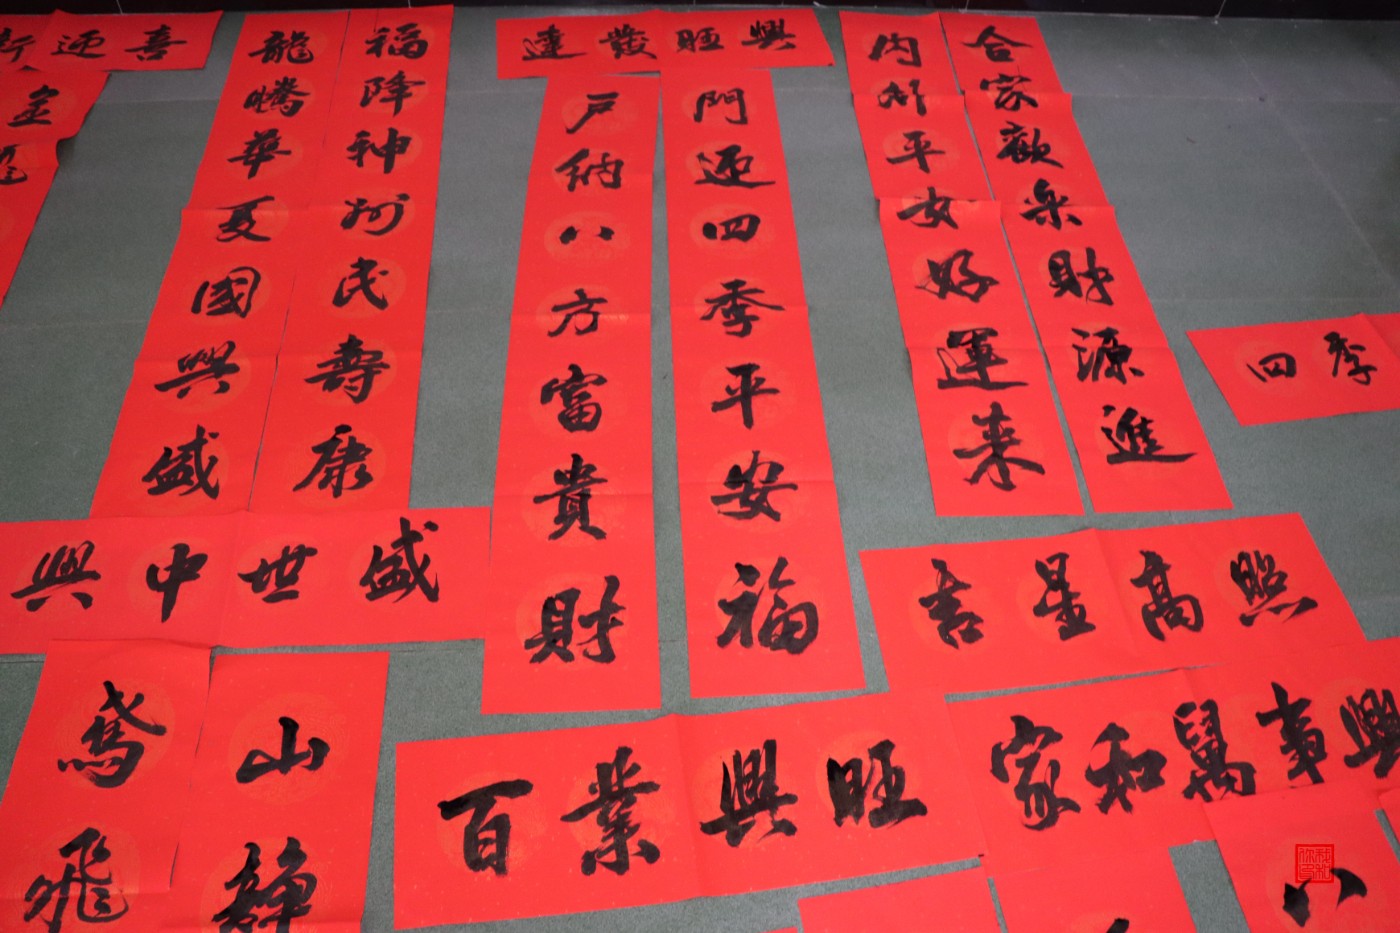 新迎喜
金
龍騰華夏國興盛
福降神州民壽康
達發旺興
戶納八方富貴財
門迎四季平安福
内外平安好運来
合家歡樂財源進
四季
興中世盛
吉星高照
百業興旺
家和萬事興
鳶飛
山静
八